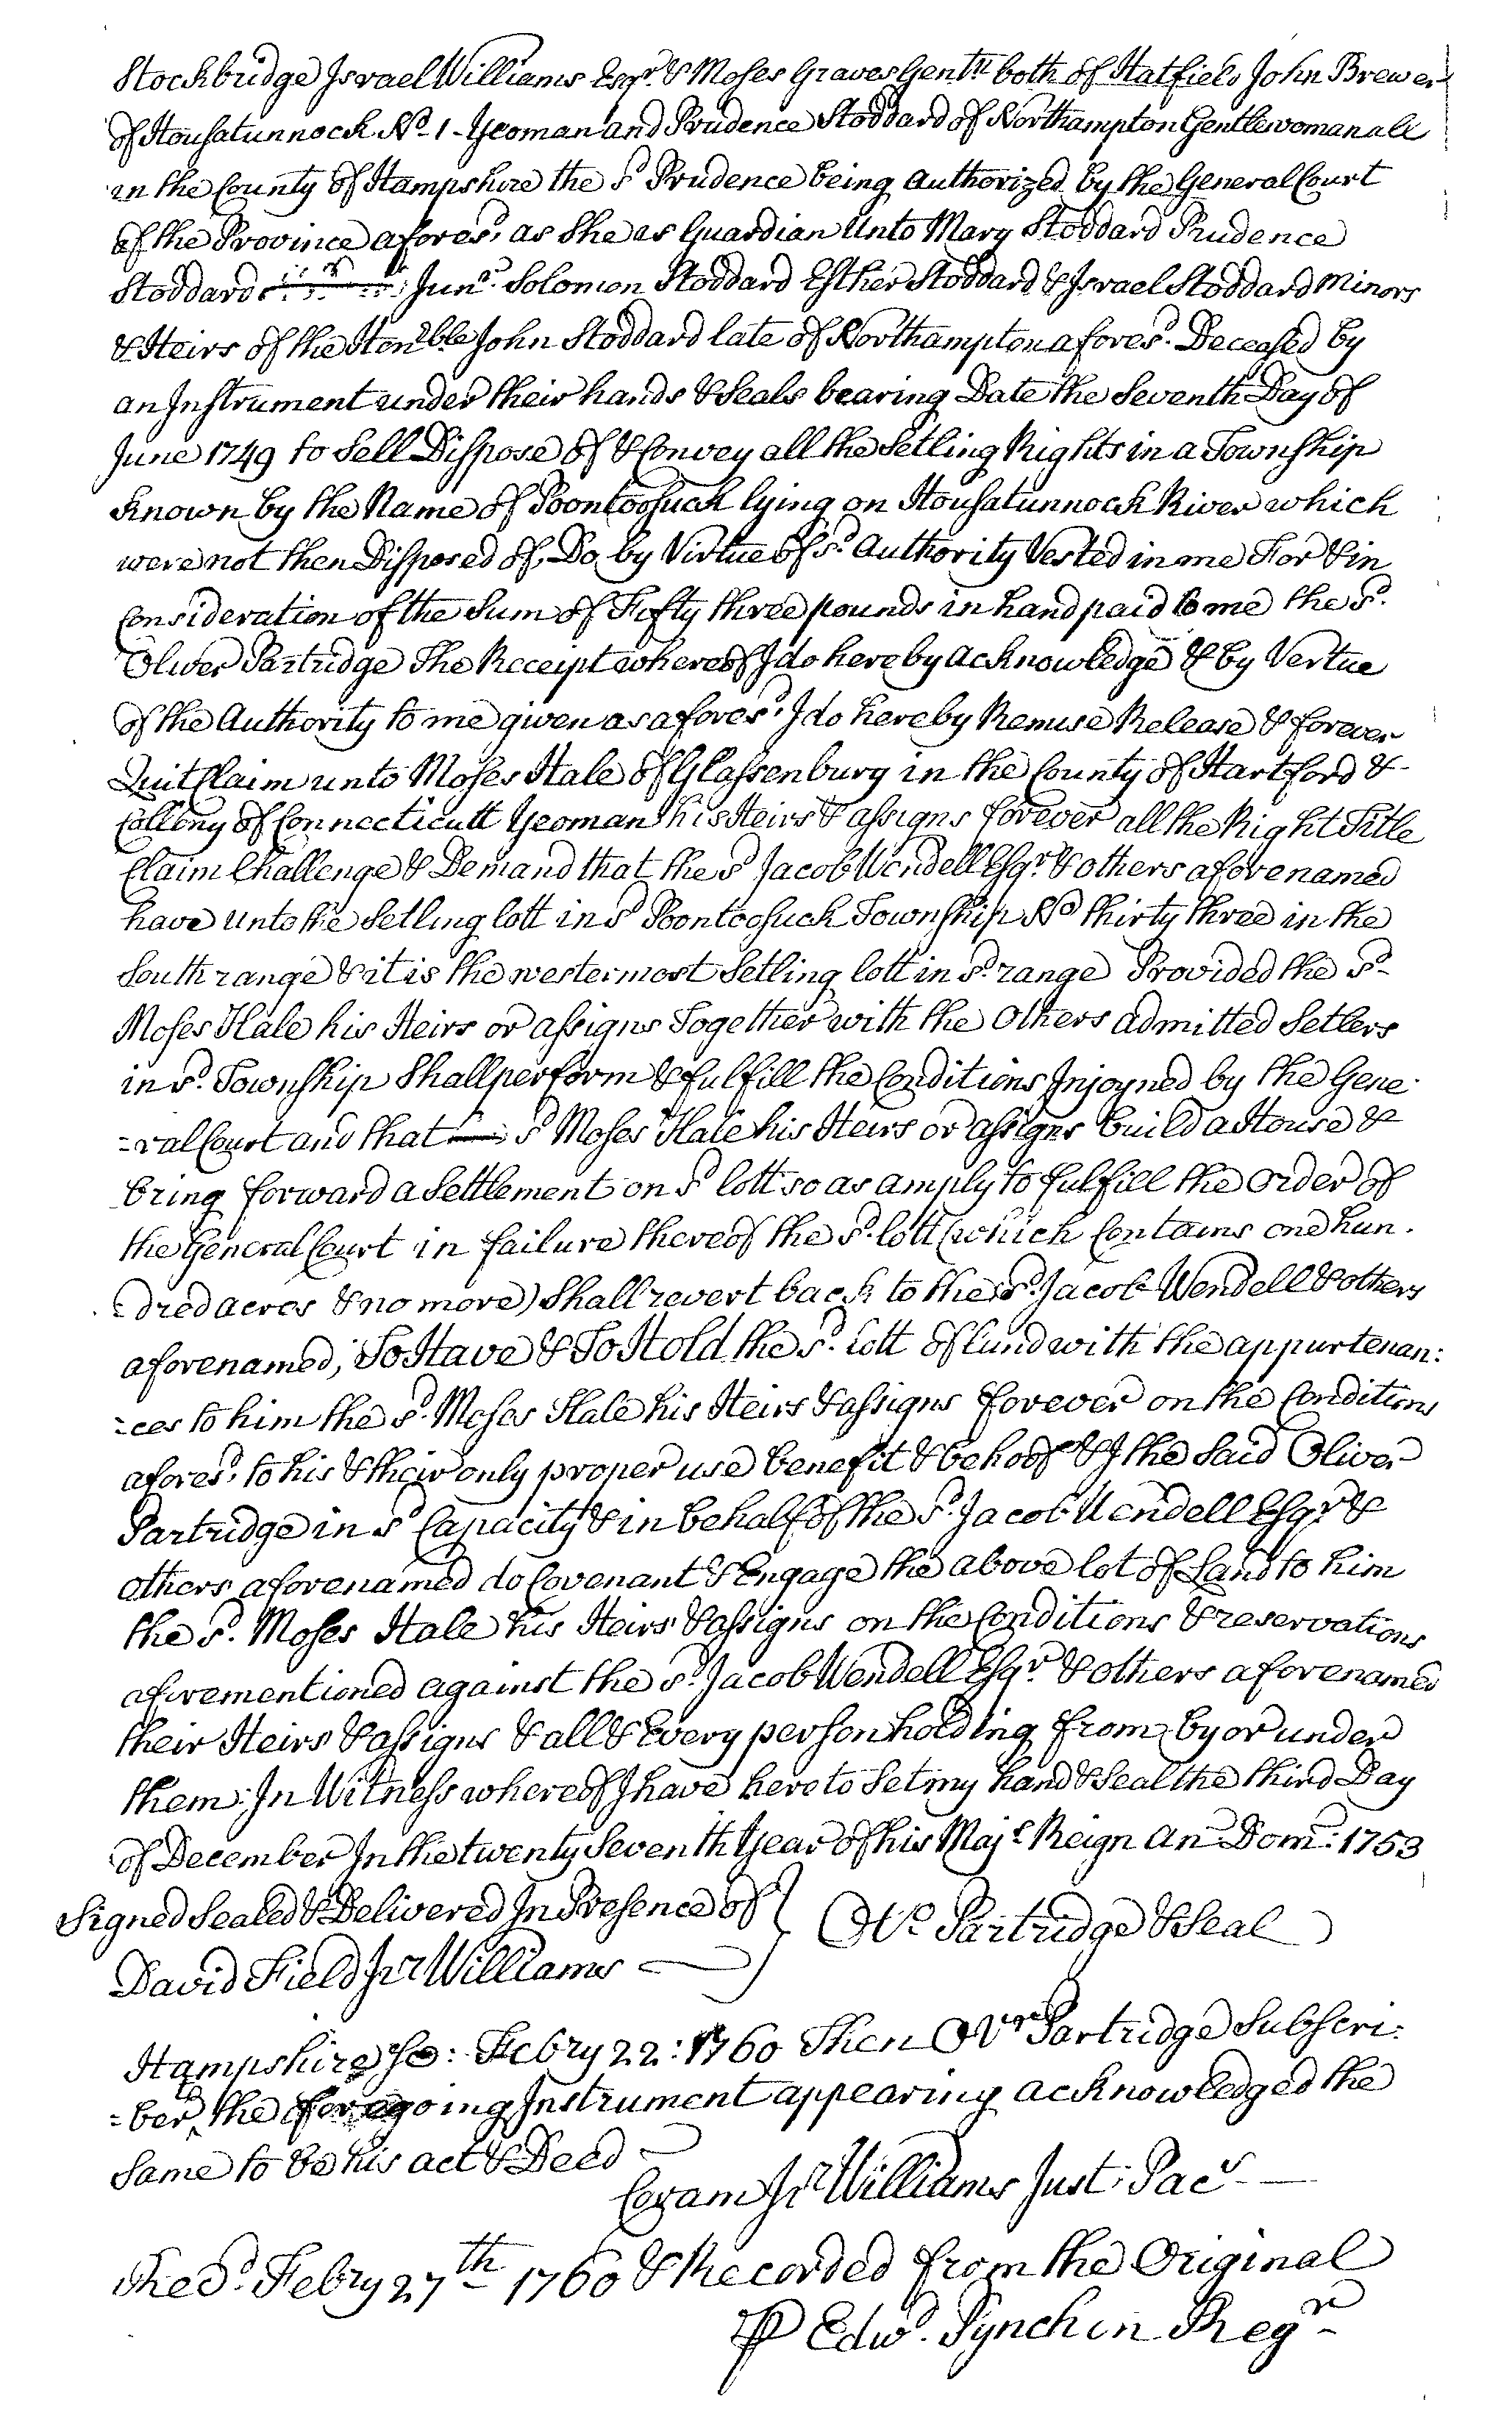 Stockbridge Israel Williams Esqr. & Moses Graves Gentn. both of Hatfield John Brewer
of Housatunnock No. 1 - Yeoman and Prudence Stoddard of Northampton Gentlewoman all
in the County of Hampshire the sd Prudence being Authorized by the General Court
of the Province afores.d as She as Guardian Unto Mary Stoddard Prudence
Stoddard Junr. Solomon Stoddard Esther Stoddard & Israel Stoddard Minors
& Heirs of the Honble John Stoddard late of Northampton afores.d Deceased by
an Instrument under their hands & Seals bearing Date the Seventh Day of
June 1749 to Sell Dispose of & Convey all the Setling Rights in a Township
Known by the Name of Poontoosuck lying on Housatunnock River which
were not then Disposed of, Do by Virtue of sd. Authority Vested in me For & in
Consideration of the Sum of Fifty three pounds in hand paid to me the sd.
Oliver Partridge The Receipt whereof I do hereby acknowledge & by Vertue
of the Authority to me given as afores.d I do hereby Remise Release & forever
Quit Claim unto Moses Hale of Glassenbury in the County of Hartford &
Collony of Connecticutt Yeoman his Heirs & assigns forever all the Right Title
Claim Challenge & Demand that the sd Jacob Wendell Esqr. & others aforenamed
have unto the Setling lott in sd Poontoosuck Township No thirty three in the
South range & it is the westermost Setling lott in sd. range Provided the sd-
Moses Hale his Heirs or assigns Together with the Others admitted Setlers
in sd. Township Shall perform & fulfill the Conditions Injoyned by the Gene-
=ral Court and that sd Moses Hale his Heirs or assigns build a House &
bring forward a Settlement on sd lott so as amply to fulfill the Order of
the General Court in failure thereof the sd. lott (which Contains one hun-
=dred acres & no more) Shall revert back to the sd. Jacob Wendell & others
aforenamed; To Have & To Hold the sd. lott of land with the appurtenan:
=ces to him the sd. Moses Hale his Heirs & assigns forever on the Conditions
afores.d to his & their only proper use benefit & behoof & I the Said Oliver
Partridge in sd Capacity & in behalf of the sd. Jacob Wendell Esqr. &
others aforenamed do Covenant & Engage the above lot of Land to him
the sd. Moses Hale his Heirs & assigns on the Conditions & reservations
aforementioned against the sd. Jacob Wendell Esqr. & others aforenamed
their Heirs & assigns & all & Every person holding from by or under
them: In Witness whereof I have hereto Set my hand & Seal the third Day
of December In the twenty Seventh Year of his Majs. Reign An Dom: 1753
Signed Sealed & Delivered In Presence of } Olr. Partridge & Seal
David Field Isr Williams
Hampshire ss: Febry 22: 1760 Then Olvr Partridge Subscri:
=ber to the foregoing Instrument appearing acknowledged the
Same to be his act & Deed
Coram Isr Williams Just: Pacs
Recd. Febry 27th 1760 & Recorded from the Original
P Edwd. Pynchin Regr